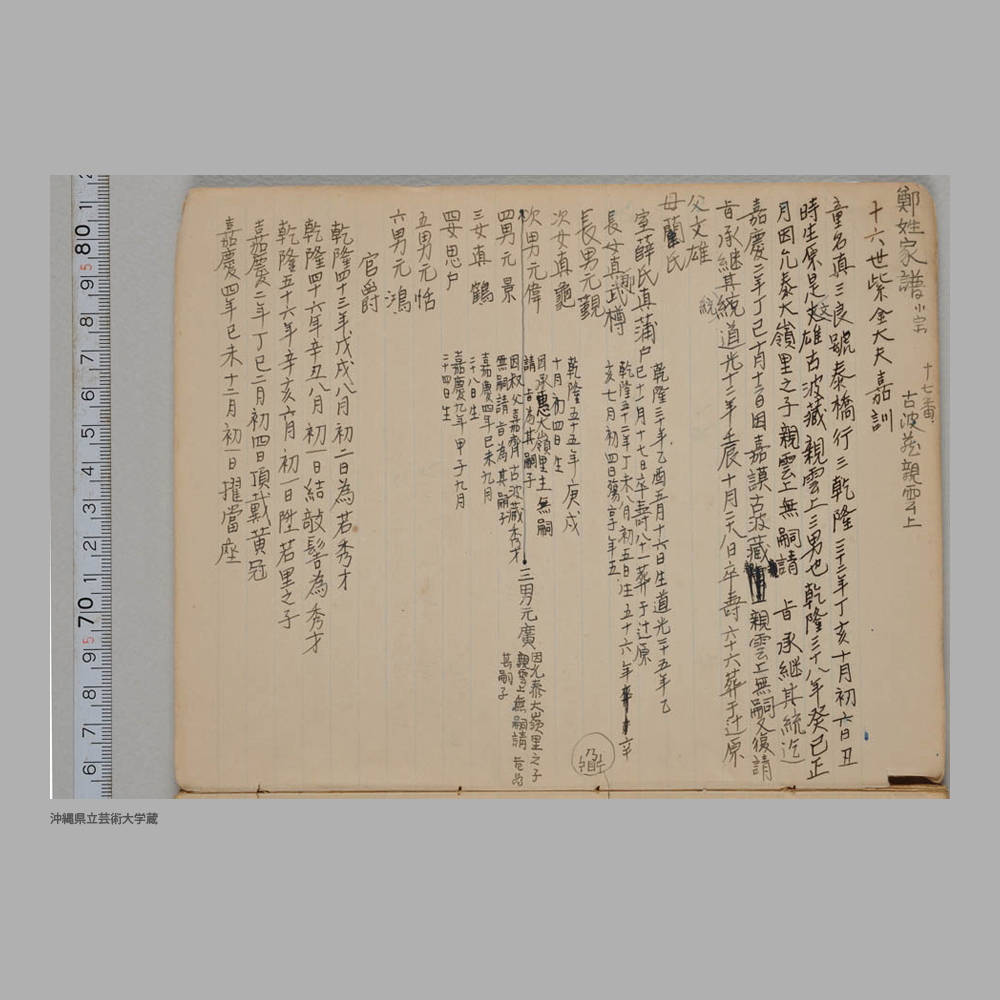 鄭姓家譜 小宗
十七番 古波蔵親雲上
十六世紫金大夫嘉訓
童名真三良號泰橋行三乾隆三十二年丁亥十月初六日丑
時生原是文雄古波藏親雲上三男也乾隆三十八年癸巳正
月因允泰大嶺里之子親雲上無嗣請 旨承継其統迄
嘉慶二年丁巳十月十二日因嘉謨古波藏親雲上無嗣又復請
旨承継其統道光十二年壬辰十月二八日卒壽六十六葬于辻原
統
父文雄
母蘭氏
室薛氏真蒲戸 乾隆三十年乙酉五月十六日生道光二十五年乙
巳十一月十七日卒壽八十一葬于辻原
長女真武樽 乾隆五十二年丁未八月初五日生五十六年辛
亥七月初四日殤享年五
長男元覲
次女真龜
次男元偉 乾隆五十五年庚戌
十月初四日生
因承惠大嶺里主無嗣
請 旨為其嗣子
三男元廣 因允泰大嶺里之子
親雲上無嗣請 旨為
其嗣子
四男元景 因叔父嘉齊古波藏秀才
無嗣請 旨為其嗣子
三女真鶴 嘉慶四年己未九月
二十八日生
四女思戸 嘉慶九年甲子九月
二十四日生
五男元恬
六男元鴻
官爵
乾隆四十三年戊戌八月初二日為若秀才
乾隆四十六年辛丑八月初一日結敧髻為秀才
乾隆五十六年辛亥六月初一日陞若里之子
嘉慶二年丁巳二月初四日頂戴黄冠
嘉慶四年己未十二月初一日擢當座
80
70
沖縄県立芸術大学蔵